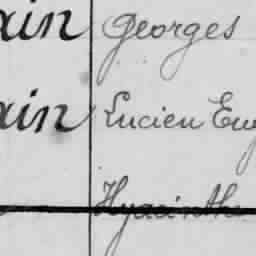 ain Georges
ain Lucien Eug
Hyacinthe